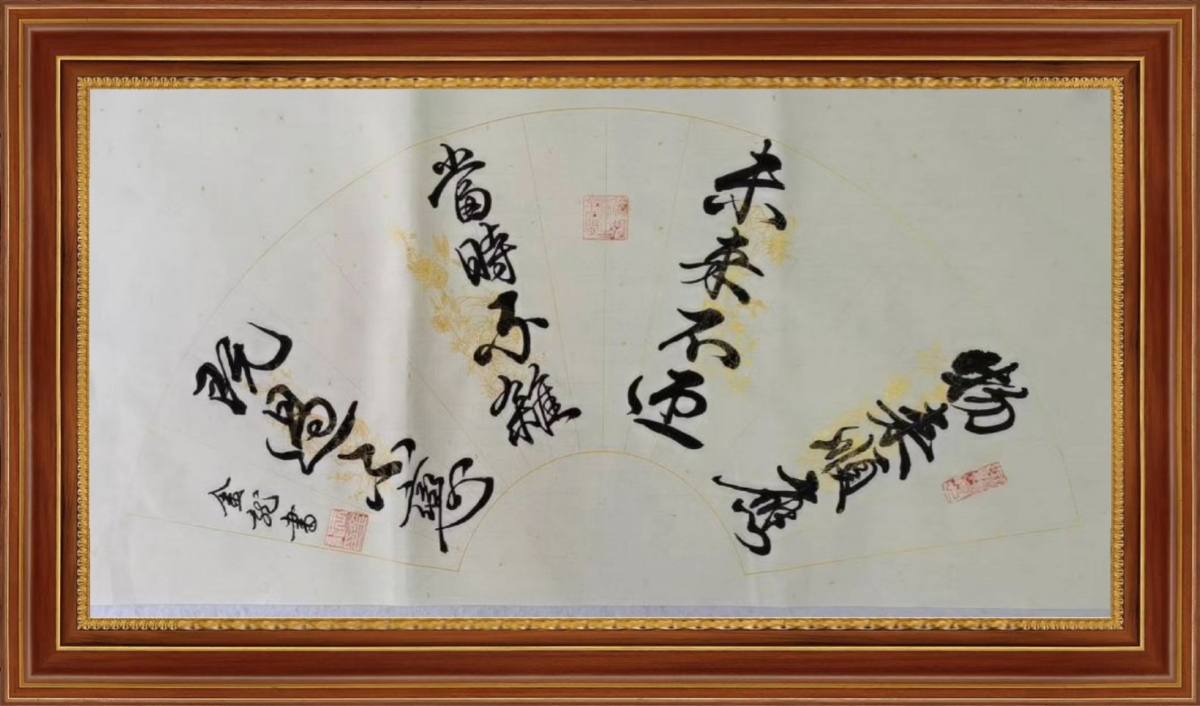 物來順應
未來不迎
當時不雜
既過不戀
金龍書